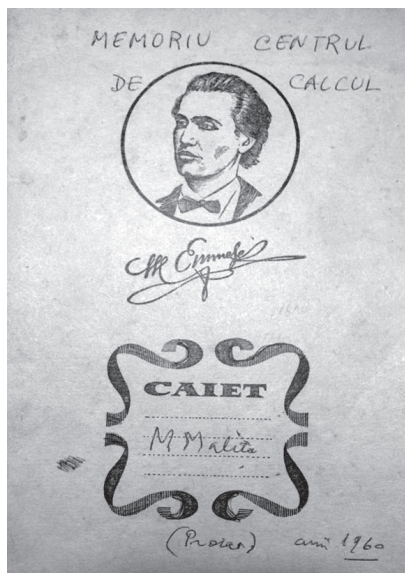 MEMORIU CENTRUL
DE CALCUL
M Eminescu
CAIET
M Malița
anii 1960